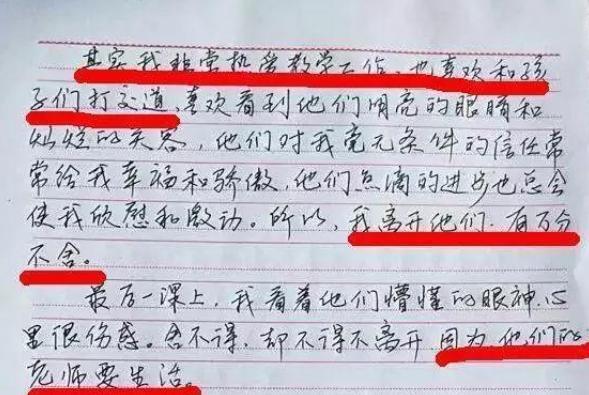 其实我非常热爱教学工作,也喜欢和孩
子们打交道,喜欢看到他们明亮的眼睛和
灿烂的笑容,他们对我毫无条件的信任常
常给我幸福和骄傲,他们点滴的进步也总会
使我欣慰和激动。所以,我离开他们,有万分
不舍。
最后一课上,我看着他们懵懂的眼神,心
里很伤感。舍不得,却不得不离开,因为他们的
老师要生活。